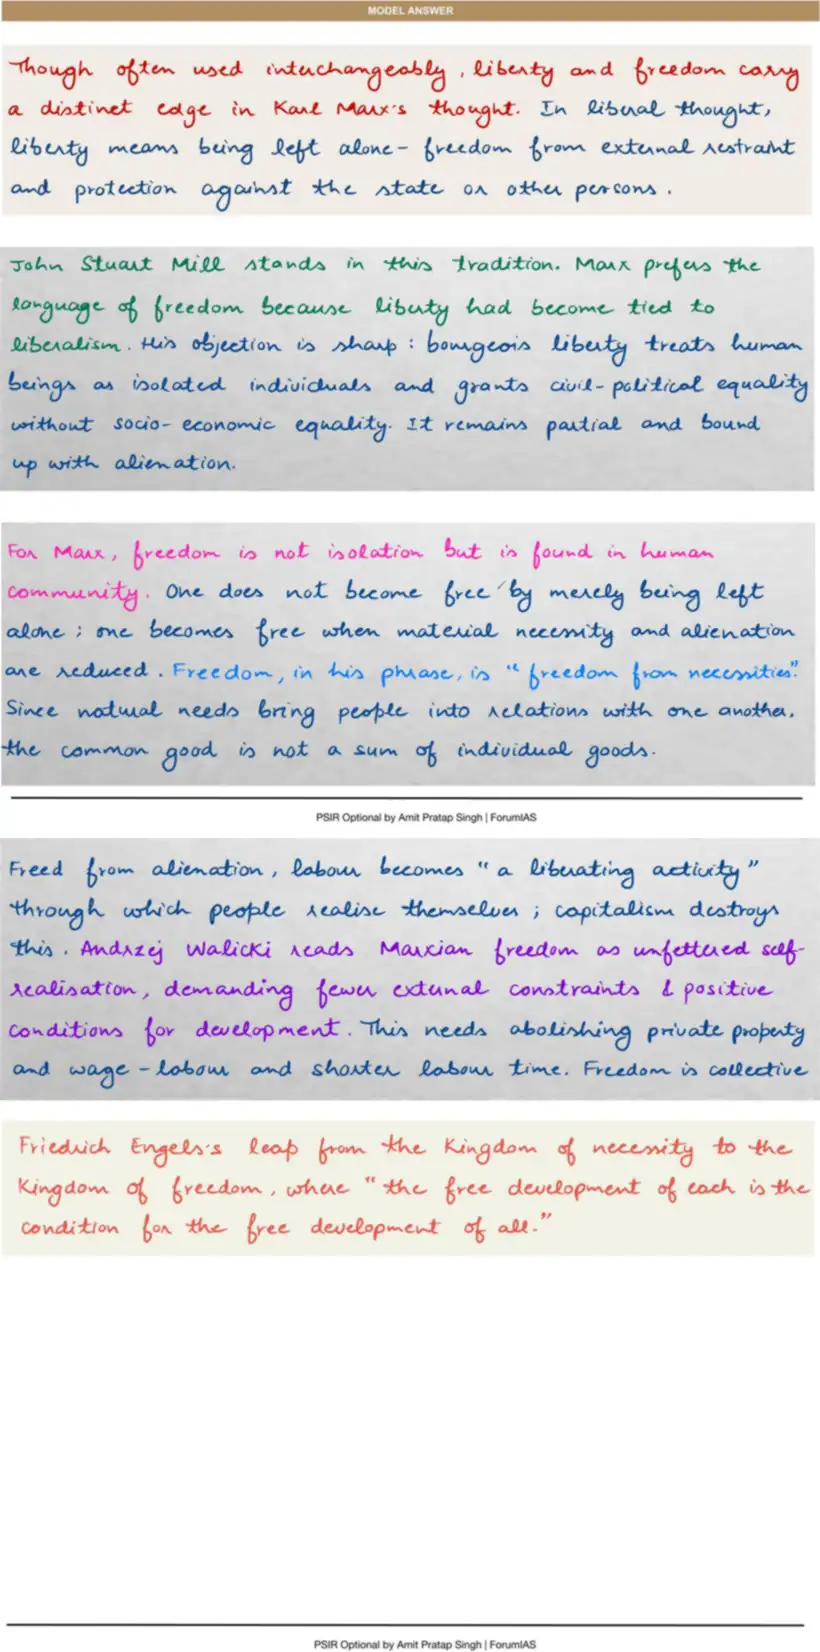 MODEL ANSWER
Though often used interchangeably, liberty and freedom carry
a distinct edge in Karl Marx's thought. In liberal thought,
liberty means being left alone- freedom from external restraint
and protection against the state or other persons.
John Stuart Mill stands in this tradition. Marx prefers the
language of freedom because liberty had become tied to
liberalism. His objection is sharp: bourgeois liberty treats human
beings as isolated individuals and grants civil-political equality
without socio-economic equality. It remains partial and bound
up with alienation.
For Marx, freedom is not isolation but is found in human
community. One does not become free by merely being left
alone; one becomes free when material necessity and alienation
are reduced. Freedom, in his phrase, is "freedom from necessities".
Since natural needs bring people into relations with one another,
the common good is not a sum of individual goods.
PSIR Optional by Amit Pratap Singh | ForumIAS
Freed from alienation, labour becomes "a liberating activity"
through which people realise themselves; capitalism destroys
this. Andrzej Walicki reads Marxian freedom as unfettered self-
realisation, demanding fewer external constraints & positive
conditions for development. This needs abolishing private property
and wage-labour and shorter labour time. Freedom is collective
Friedrich Engels's leap from the Kingdom of necessity to the
Kingdom of freedom, where "the free development of each is the
condition for the free development of all."
PSIR Optional by Amit Pratap Singh | ForumIAS